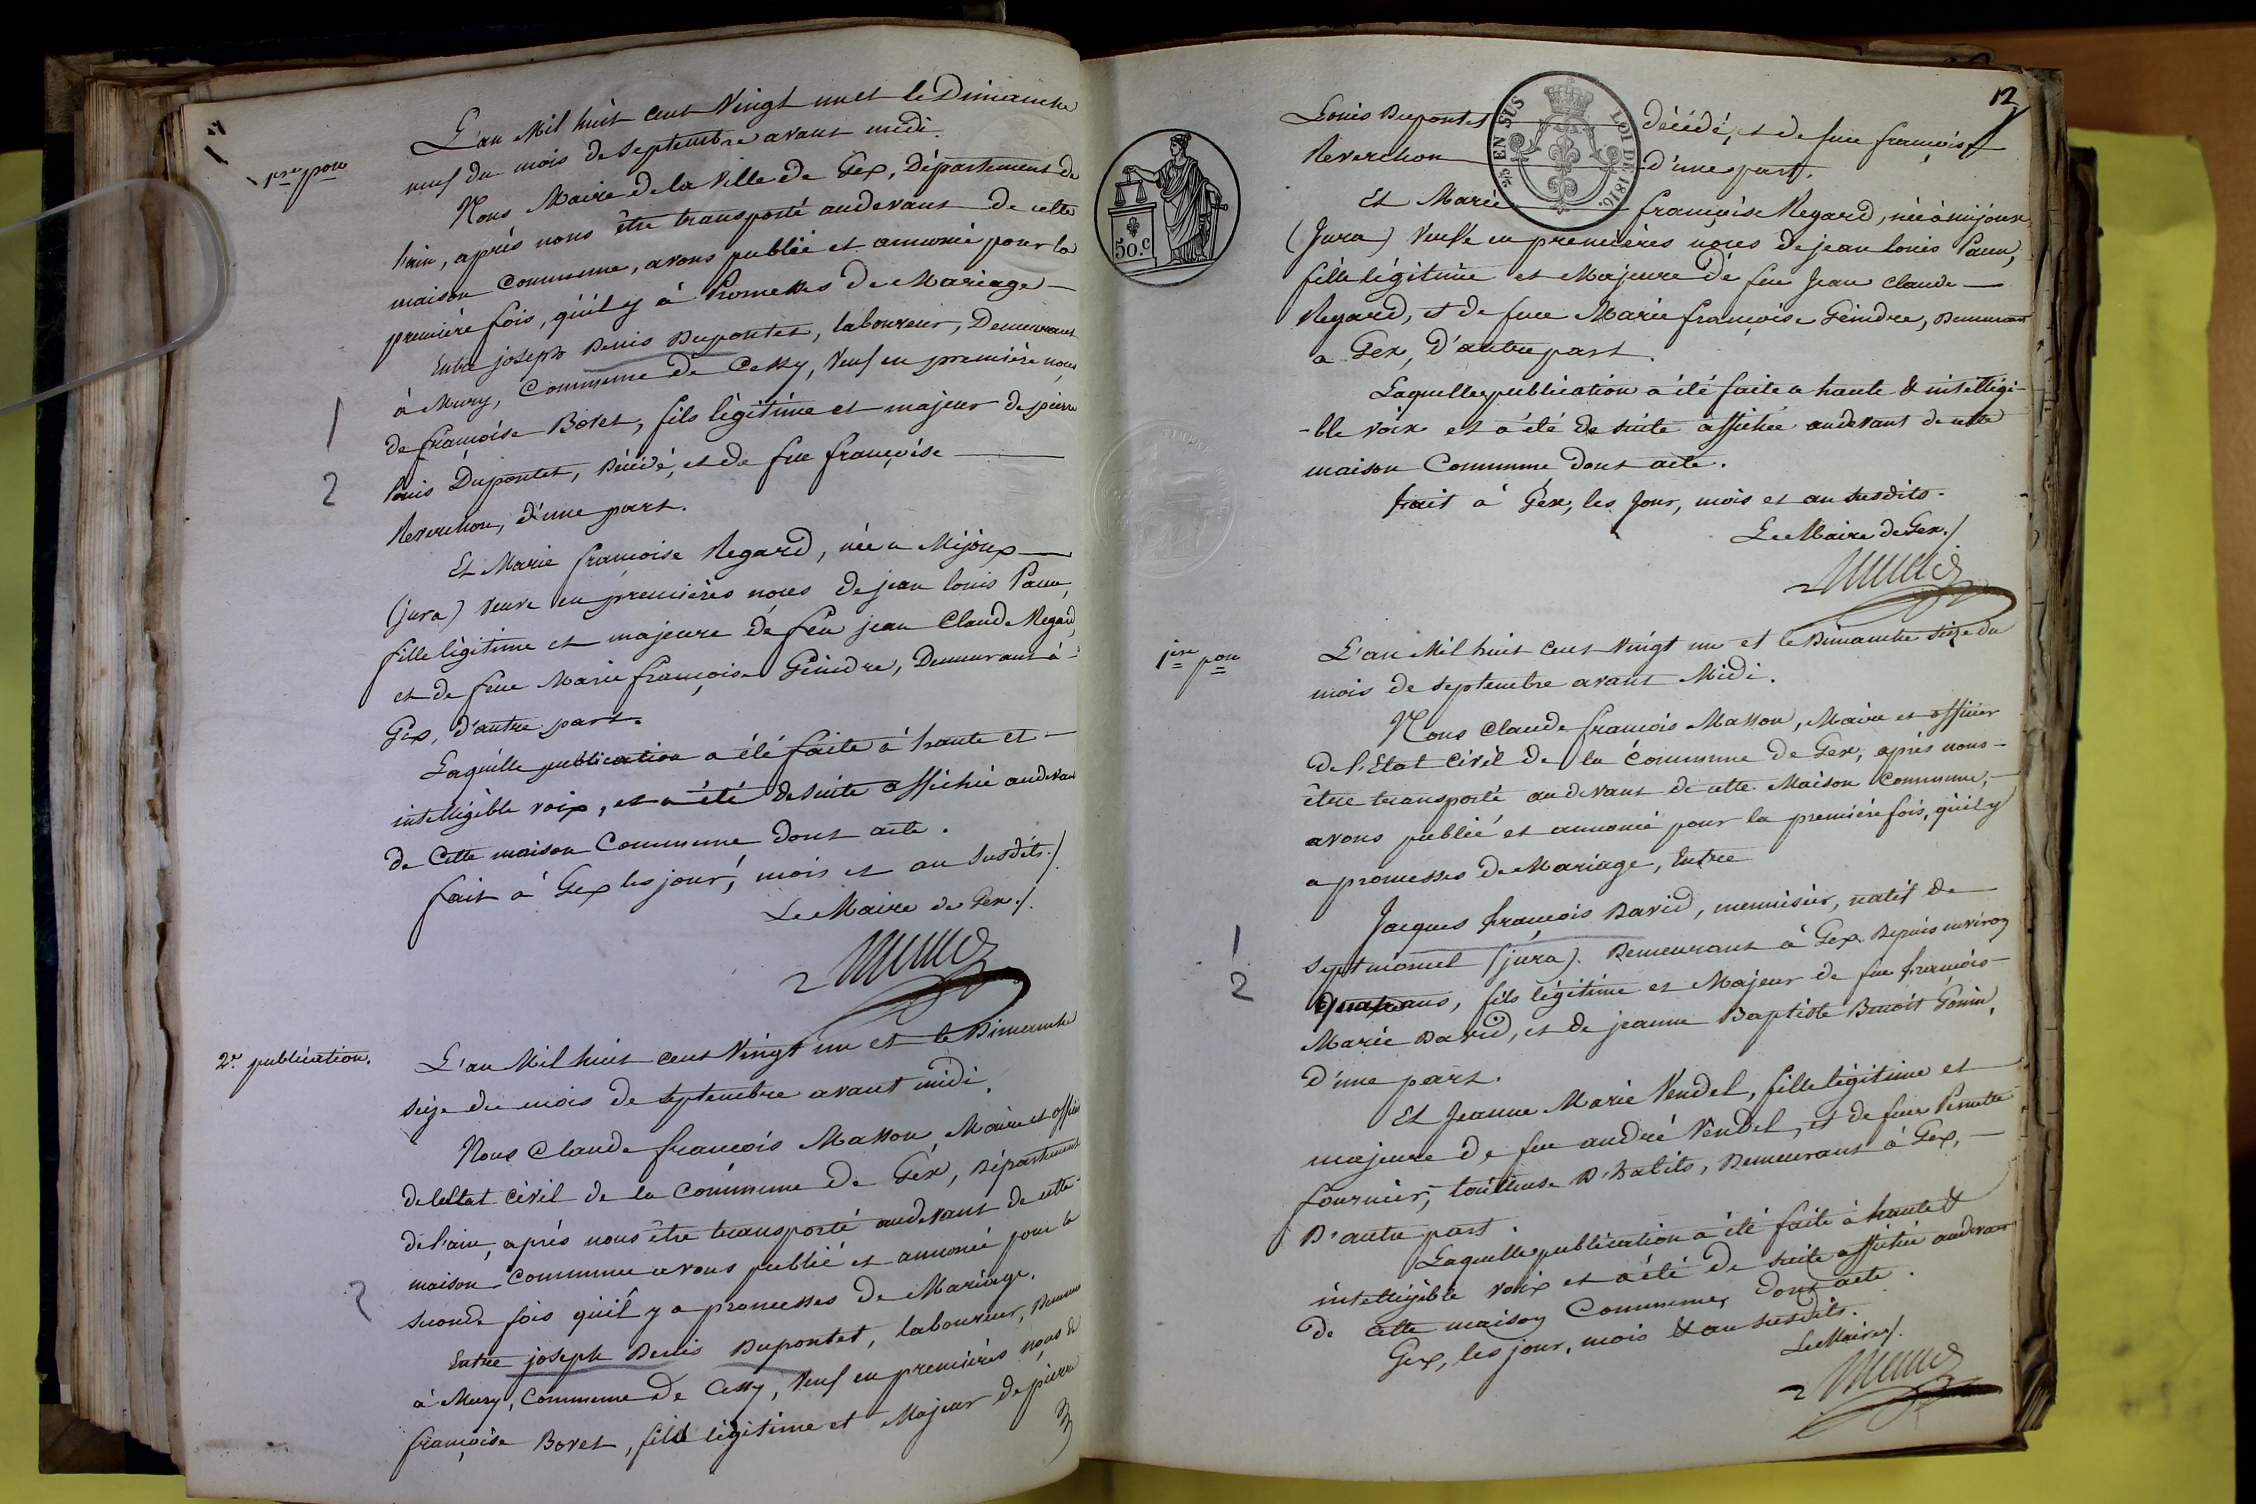 1re pon
L'an Mil huit cent Vingt un et le Dimanche
neuf du mois de septembre avant midi.
Nous Maire de la Ville de Gex, Département de
l'ain, après nous être transporté audevant de cette
maison Commune, avons publié et annoncé pour la
première fois, qu'il y à Promesses de Mariage
Entre joseph Denis Dupontet, laboureur, Demeurant
1
à Mury, Commune de Cessy, Veuf en première noces
de françoise Boret, fils légitime et majeur de pierre
2
louis Dupontet, Décédé, et de feue françoise
Reverchon, d'une part.
Et Marie françoise Regard, née a Mijoux
(jura) veuve en premières noces de jean louis Paux,
fille légitime et majeure dé feu jean Claude Regard,
et de feue Marie françoise Geindre, Demeurant à
Gex, d'autre part.
Laquelle publication a été faite à haute et
intelligible voix, et a été de suite affichée audevant
de Cette maison Commune dont acte.
fait à Gex les jour, mois et an susdits./.
Le Maire de Gex./.
2e publication.
L'an Mil huit cent Vingt un et le Dimanche
seize du mois de septembre avant midi.
Nous Claude françois Masson, Maire et officier
de lEtat civil de la Commune de Gex, Département
de l'ain, après nous être transporté audevant de cette
maison Commune avons publié et annoncé pour la
2
seconde fois qu'il y a promesses de Mariage.
Entre joseph Denis Dupontet, laboureur, Demeurant
à Mury, Commune de Cessy, Veuf en premières noces de
françoise Boret, fils légitime et Majeur de pierre
12
Louis Dupontet décédé, et de feue françoise
Reverchon d'une part.
EN SUS
LOI DE 1816
50.c
Et Marie françoise Regard, née à mijoux
(Jura) Veuve en premières noces de jean louis Paux,
fille légitime et Majeure dé feu Jean Claude
Regard, et de feue Marie françoise Geindre, Demeurant
a Gex, D'autre part.
Laquelle publication a été faite a haute & intelligi-
-ble voix et a été de suite affichée audevant de cette
maison Commune dont acte.
fait à Gex, les Jour, mois et an susdits.
Le Maire de Gex./
1ère pon
L'an Mil huit cent Vingt un et le Dimanche seize du
mois de septembre avant Midi.
Nous Claude françois Masson, Maire et officier
de l'Etat Civil de la Commune de Gex, après nous
être transporté audevant de cette Maison Commune,
avons publié et annoncé pour la première fois, qu'il y
a promesses de Mariage, Entre
Jacques françois David, menuisier, natif de
1
Septmoncel (jura). Demeurant à Gex Depuis environ
2
quatre ans, fils légitime et Majeur de feu françois
Marie David, et de jeanne Baptiste Benoit Gonin,
D'une part.
Et Jeanne Marie Vendel, fille légitime et
majeure de feu andré Vendel, et de feue Pernette
fournier, tailleuse D'habits, Demeurant à Gex,
D'autre part.
Laquelle publication a été faite à haute &
intelligible voix et a été de suite affichée audevant
de Cette maison Commune, dont acte.
Gex, les jour, mois & an susdits.
Le Maire/.